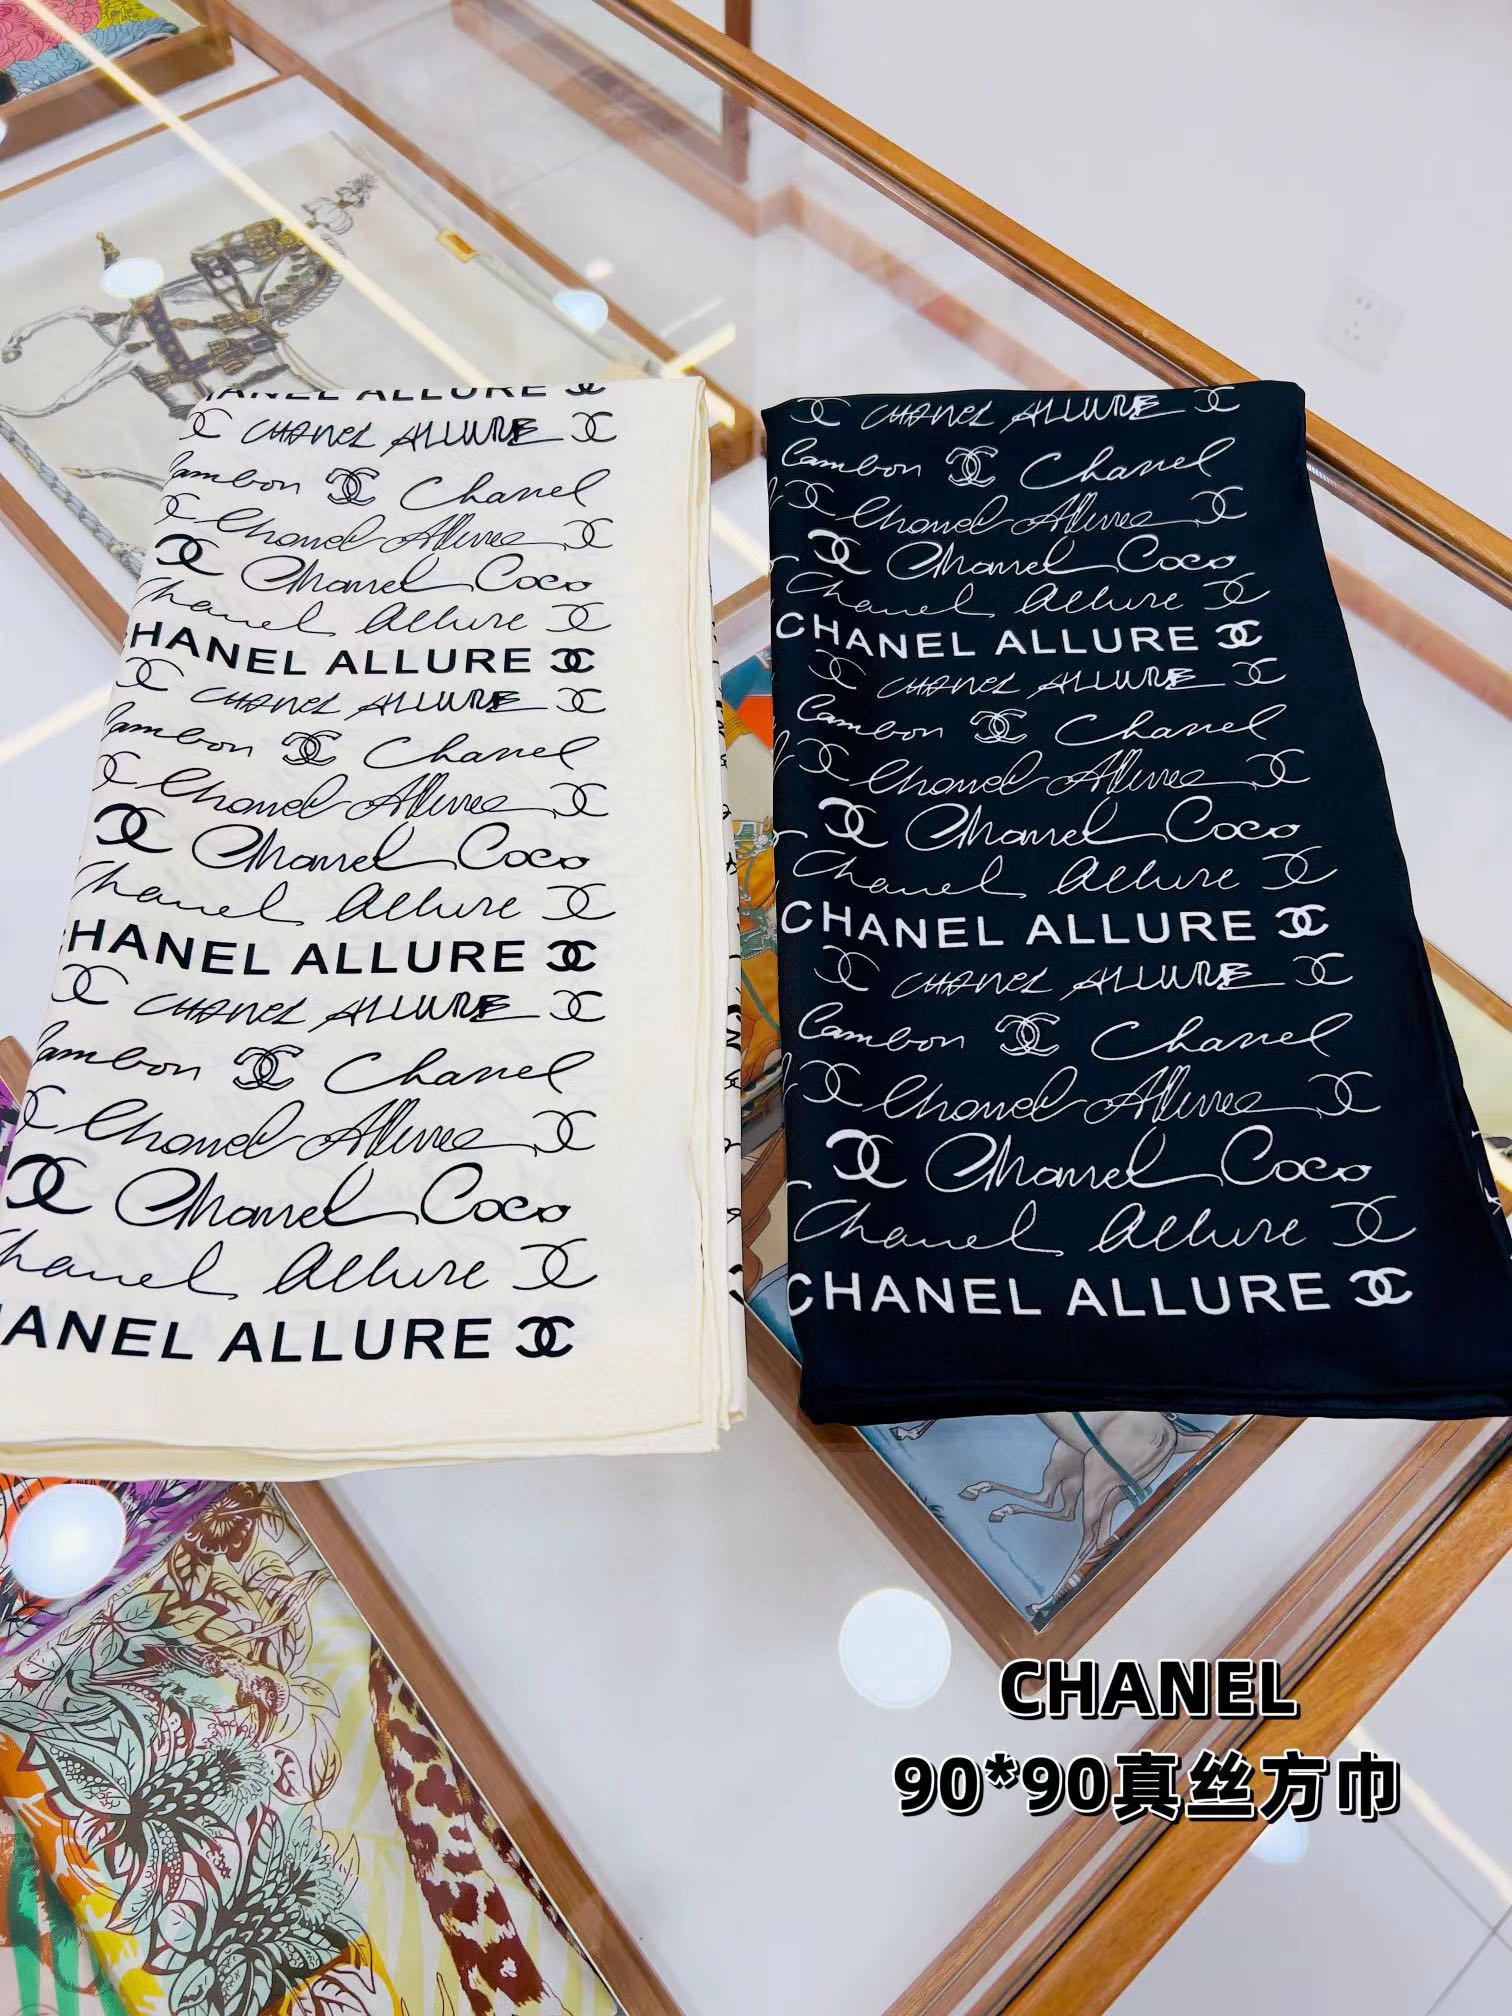 HANEL ALLURE
CHANEL ALLURE
ambon Chanel
Chanel Allure
Chanel Coco
Chanel Allure
HANEL ALLURE
CHANEL ALLURE
ambon Chanel
Chanel Allure
Chanel Coco
Chanel Allure
HANEL ALLURE
CHANEL ALLURE
ambon Chanel
Chanel Allure
Chanel Coco
hanel Allure
ANEL ALLURE
CHANEL ALLURE
Cambon Chanel
Chanel Allure
Chanel Coco
Chanel Allure
CHANEL ALLURE
CHANEL ALLURE
Cambon Chanel
Chanel Allure
Chanel Coco
Chanel Allure
CHANEL ALLURE
CHANEL ALLURE
Cambon Chanel
Chanel Allure
Chanel Coco
Chanel Allure
CHANEL ALLURE
CHANEL
90*90真丝方巾